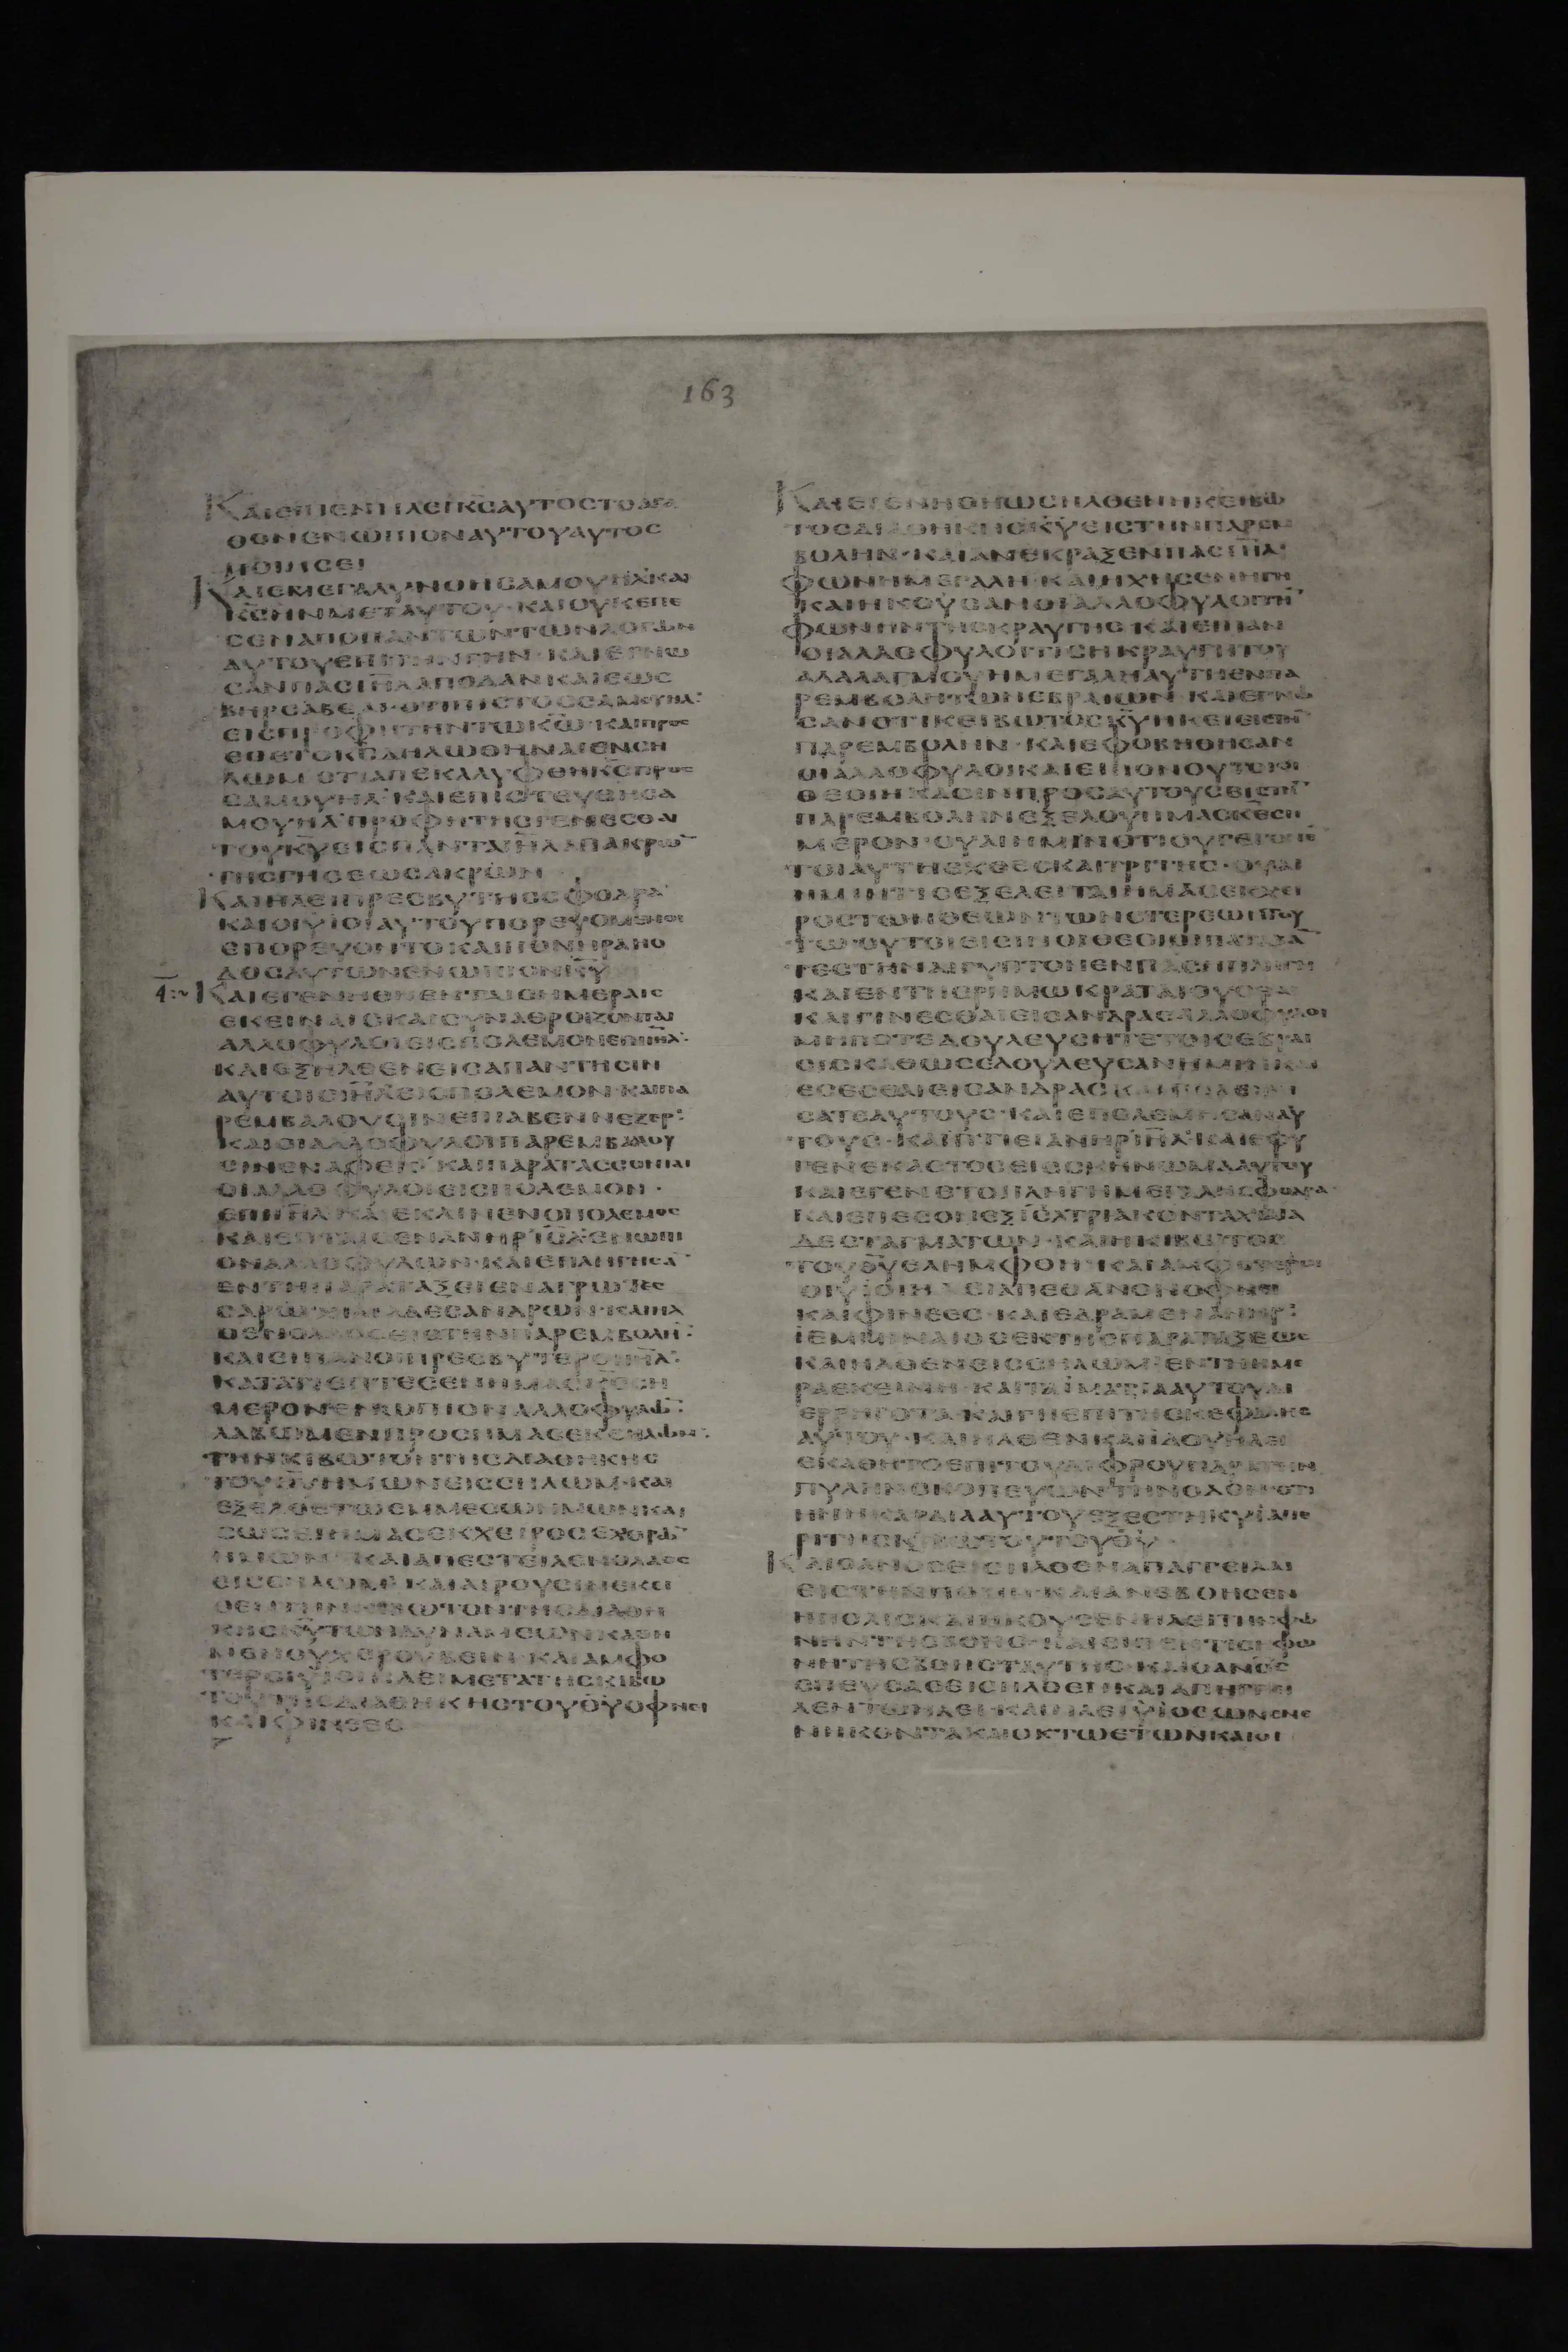 163
ΚΑΙΕΙΠΕΝΗΛΕΙΚ̅Σ̅ΑΥΤΟΣΤΟΑΓΑ
ΘΟΝΕΝΩΠΙΟΝΑΥΤΟΥΑΥΤΟΣ
ΠΟΙΗΣΕΙ
ΚΑΙΕΜΕΓΑΛΥΝΘΗΣΑΜΟΥΗΛ·ΚΑΙ
Κ̅Σ̅ΗΝΜΕΤΑΥΤΟΥ·ΚΑΙΟΥΚΕΠΕ
ΣΕΝΑΠΟΠΑΝΤΩΝΤΩΝΛΟΓΩΝ
ΑΥΤΟΥΕΠΙΤΗΝΓΗΝ·ΚΑΙΕΓΝΩ
ΣΑΝΠΑΣΙ̅Η̅Λ̅ΑΠΟΔΑΝΚΑΙΕΩΣ
ΒΗΡΣΑΒΕΑΙ·ΟΤΙΠΙΣΤΟΣΣΑΜΟΥΗΛ·
ΕΙΣΠΡΟΦΗΤΗΝΤΩΚ̅Ω̅·ΚΑΙΠΡΟΣ
ΕΘΕΤΟΚ̅Σ̅ΔΗΛΩΘΗΝΑΙΕΝΣΗ
ΛΩΜ·ΟΤΙΑΠΕΚΑΛΥΦΘΗΚ̅Σ̅ΠΡΟΣ
ΣΑΜΟΥΗΛ·ΚΑΙΕΠΙΣΤΕΥΘΗΣΑ
ΜΟΥΗΛΠΡΟΦΗΤΗΣΓΕΝΕΣΘΑΙ
ΤΟΥΚ̅Υ̅ΕΙΣΠΑΝΤΑΙ̅Η̅Λ̅ΑΠΑΚΡΩ̅
ΤΗΣΓΗΣΕΩΣΑΚΡΩΝ
ΚΑΙΗΛΕΙΠΡΕΣΒΥΤΗΣΣΦΟΔΡΑ
ΚΑΙΟΙΥΙΟΙΑΥΤΟΥΠΟΡΕΥΟΜΕΝΟΙ
ΕΠΟΡΕΥΟΝΤΟΚΑΙΠΟΝΗΡΑΗΟ
ΔΟΣΑΥΤΩΝΕΝΩΠΙΟΝΚ̅Υ̅
ΚΑΙΕΓΕΝΗΘΗΕΝΤΑΙΣΗΜΕΡΑΙΣ
ΕΚΕΙΝΑΙΣΚΑΙΣΥΝΑΘΡΟΙΖΟΝΤΑΙ
ΑΛΛΟΦΥΛΟΙΕΙΣΠΟΛΕΜΟΝΕΠΙΙ̅Η̅Λ̅·
ΚΑΙΕΞΗΛΘΕΝΕΙΣΑΠΑΝΤΗΣΙΝ
ΑΥΤΟΙΣΙ̅Η̅Λ̅ΕΙΣΠΟΛΕΜΟΝ·ΚΑΙΠΑ
ΡΕΜΒΑΛΟΥΣΙΝΕΠΙΑΒΕΝΝΕΖΕΡ·
ΚΑΙΟΙΑΛΛΟΦΥΛΟΙΠΑΡΕΜΒΑΛΟΥ
ΣΙΝΕΝΑΦΕΚ·ΚΑΙΠΑΡΑΤΑΣΣΟΝΤΑΙ
ΟΙΑΛΛΟΦΥΛΟΙΕΙΣΠΟΛΕΜΟΝ·
ΕΠΙΙ̅Η̅Λ̅·ΚΑΙΕΚΛΙΝΕΝΟΠΟΛΕΜΟΣ
ΚΑΙΕΠΤΑΙΣΕΝΑΝΗΡΙ̅Σ̅Λ̅ΕΝΩΠΙ
ΟΝΑΛΛΟΦΥΛΩΝ·ΚΑΙΕΠΛΗΓΗΣΑ̅
ΕΝΤΗΠΑΡΑΤΑΞΕΙΕΝΑΓΡΩΤΕΣ
ΣΑΡΩΧΙΛΙΑΔΕΣΑΝΔΡΩΝ·ΚΑΙΗΛ
ΘΕΝΟΛΑΟΣΕΙΣΤΗΝΠΑΡΕΜΒΟΛΗ̅·
ΚΑΙΕΙΠΑΝΟΙΠΡΕΣΒΥΤΕΡΟΙΙ̅Η̅Λ̅·
ΚΑΤΑΤΙΕΠΤΕΣΕΝΗΜΑΣΚ̅Σ̅ΣΗ
ΜΕΡΟΝΕΝΩΠΙΟΝΑΛΛΟΦΥΛΩ̅·
ΛΑΒΩΜΕΝΠΡΟΣΗΜΑΣΕΚΣΗΛΩΜ·
ΤΗΝΚΙΒΩΤΟΝΤΗΣΔΙΑΘΗΚΗΣ
ΤΟΥΘ̅Υ̅ΗΜΩΝΕΙΣΣΗΛΩΜ·ΚΑΙ
ΕΞΕΛΘΕΤΩΕΜΜΕΣΩΗΜΩΝΚΑΙ
ΣΩΣΕΙΗΜΑΣΕΚΧΕΙΡΟΣΕΧΘΡΩ̅
ΗΜΩΝ·ΚΑΙΑΠΕΣΤΕΙΛΕΝΟΛΑΟΣ
ΕΙΣΣΗΛΩΜ·ΚΑΙΑΙΡΟΥΣΙΝΕΚΕΙ
ΘΕΝΤΗΝΚΙΒΩΤΟΝΤΗΣΔΙΑΘΗ
ΚΗΣΚ̅Υ̅ΤΩΝΔΥΝΑΜΕΩΝΚΑΘΗ
ΜΕΝΟΥΧΕΡΟΥΒΕΙΝ·ΚΑΙΑΜΦΟ
ΤΕΡΟΙΥΙΟΙΗΛΕΙΜΕΤΑΤΗΣΚΙΒΩ
ΤΟΥΤΗΣΔΙΑΘΗΚΗΣΤΟΥΘ̅Υ̅ΟΦΝΕΙ
ΚΑΙΦΙΝΕΕΣ
ΚΑΙΕΓΕΝΗΘΗΩΣΗΛΘΕΝΗΚΕΙΒΩ
ΤΟΣΔΙΑΘΗΚΗΣΚ̅Υ̅ΕΙΣΤΗΝΠΑΡΕΜ
ΒΟΛΗΝ·ΚΑΙΑΝΕΚΡΑΞΕΝΠΑΣΙ̅Η̅Λ̅
ΦΩΝΗΜΕΓΑΛΗ·ΚΑΙΗΧΗΣΕΝΗΓΗ
ΚΑΙΗΚΟΥΣΑΝΟΙΑΛΛΟΦΥΛΟΙΤΗ̅
ΦΩΝΗΝΤΗΣΚΡΑΥΓΗΣ·ΚΑΙΕΙΠΑΝ
ΟΙΑΛΛΟΦΥΛΟΙΤΙΣΗΚΡΑΥΓΗΤΟΥ
ΑΛΑΛΑΓΜΟΥΗΜΕΓΑΛΗΑΥΤΗΕΝΠΑ
ΡΕΜΒΟΛΗΤΩΝΕΒΡΑΙΩΝ·ΚΑΙΕΓΝΩ
ΣΑΝΟΤΙΚΕΙΒΩΤΟΣΚ̅Υ̅ΗΚΕΙΕΙΣΤΗ̅
ΠΑΡΕΜΒΟΛΗΝ·ΚΑΙΕΦΟΒΗΘΗΣΑΝ
ΟΙΑΛΛΟΦΥΛΟΙΚΑΙΕΙΠΟΝΟΥΤΟΙΟΙ
ΘΕΟΙΗΚΑΣΙΝΠΡΟΣΑΥΤΟΥΣΕΙΣΤΗ̅
ΠΑΡΕΜΒΟΛΗΝΕΞΕΛΟΥΗΜΑΣΚ̅Ε̅ΣΗ
ΜΕΡΟΝ·ΟΥΑΙΗΜΙΝΟΤΙΟΥΓΕΓΟΝΕ
ΤΟΙΑΥΤΗΕΧΘΕΣΚΑΙΤΡΙΤΗΣ·ΟΥΑΙ
ΗΜΙΝΤΙΣΕΞΕΛΕΙΤΑΙΗΜΑΣΕΚΧΕΙ
ΡΟΣΤΩΝΘΕΩΝΤΩΝΣΤΕΡΕΩΝΤΟΥ
ΤΩ·ΟΥΤΟΙΕΙΣΙΝΟΙΘΕΟΙΟΙΠΑΤΑΞΑ̅
ΤΕΣΤΗΝΑΙΓΥΠΤΟΝΕΝΠΑΣΗΠΛΗΓΗ
ΚΑΙΕΝΤΗΕΡΗΜΩΚΡΑΤΑΙΟΥΣΘΑΙ
ΚΑΙΓΙΝΕΣΘΑΙΕΙΣΑΝΔΡΑΣΑΛΛΟΦΥΛΟΙ
ΜΗΠΟΤΕΔΟΥΛΕΥΣΗΤΕΤΟΙΣΕΒΡΑΙ
ΟΙΣΚΑΘΩΣΕΔΟΥΛΕΥΣΑΝΗΜΙΝΚΑΙ
ΕΣΕΣΘΑΙΕΙΣΑΝΔΡΑΣΚΑΙΠΟΛΕΜΗ
ΣΑΤΕΑΥΤΟΥΣ·ΚΑΙΕΠΟΛΕΜΗΣΑΝΑΥ
ΤΟΥΣ·ΚΑΙΠΤΙΕΙΑΝΗΡΙ̅Η̅Λ̅·ΚΑΙΕΦΥ
ΓΕΝΕΚΑΣΤΟΣΕΙΣΣΚΗΝΩΜΑΑΥΤΟΥ
ΚΑΙΕΓΕΝΕΤΟΠΛΗΓΗΜΕΓΑΛΗΣΦΟΔΡΑ·
ΚΑΙΕΠΕΣΟΝΕΞΙ̅Σ̅Λ̅ΤΡΙΑΚΟΝΤΑΧΙΛΙΑ
ΔΕΣΤΑΓΜΑΤΩΝ·ΚΑΙΗΚΙΒΩΤΟΣ
ΤΟΥΘ̅Υ̅ΕΛΗΜΦΘΗ·ΚΑΙΑΜΦΟΤΕΡΟΙ
ΟΙΥΙΟΙΗΛΕΙΑΠΕΘΑΝΟΝΟΦΝΕΙ
ΚΑΙΦΙΝΕΕΣ·ΚΑΙΕΔΡΑΜΕΝΑΝΗΡ·
ΙΕΜΙΝΑΙΟΣΕΚΤΗΣΠΑΡΑΤΑΞΕΩΣ
ΚΑΙΗΛΘΕΝΕΙΣΣΗΛΩΜ·ΕΝΤΗΗΜΕ
ΡΑΕΚΕΙΝΗ·ΚΑΙΤΑΙΜΑΤΙΑΑΥΤΟΥΔΙ
ΕΡΡΗΓΟΤΑ·ΚΑΙΓΗΕΠΙΤΗΣΚΕΦΑΛΗΣ
ΑΥΤΟΥ·ΚΑΙΗΛΘΕΝΚΑΙΙΔΟΥΗΛΕΙ
ΕΚΑΘΗΤΟΕΠΙΤΟΥΔΙΦΡΟΥΠΑΡΑΤΗΝ
ΠΥΛΗΝΣΚΟΠΕΥΩΝΤΗΝΟΔΟΝ·ΟΤΙ
ΗΝΗΚΑΡΔΙΑΑΥΤΟΥΕΞΕΣΤΗΚΥΙΑΠΕ
ΡΙΤΗΣΚΙΒΩΤΟΥΤΟΥΘ̅Υ̅
ΚΑΙΟΑΝΟΣΕΙΣΗΛΘΕΝΑΠΑΓΓΕΙΛΑΙ
ΕΙΣΤΗΝΠΟΛΙΝ·ΚΑΙΑΝΕΒΟΗΣΕΝ
ΗΠΟΛΙΣΚΑΙΗΚΟΥΣΕΝΗΛΕΙΤΗΝΦΩ
ΝΗΝΤΗΣΒΟΗΣ·ΚΑΙΕΙΠΕΝΤΙΣΗΦΩ
ΝΗΤΗΣΒΟΗΣΤΑΥΤΗΣ·ΚΑΙΟΑΝΟΣ
ΣΠΕΥΣΑΣΕΙΣΗΛΘΕΝΚΑΙΑΠΗΓΓΕΙ
ΛΕΝΤΩΗΛΕΙ·ΚΑΙΗΛΕΙΥΙΟΣΩΝΕΝΕ
ΝΗΚΟΝΤΑΚΑΙΟΚΤΩΕΤΩΝΚΑΙΟΙ